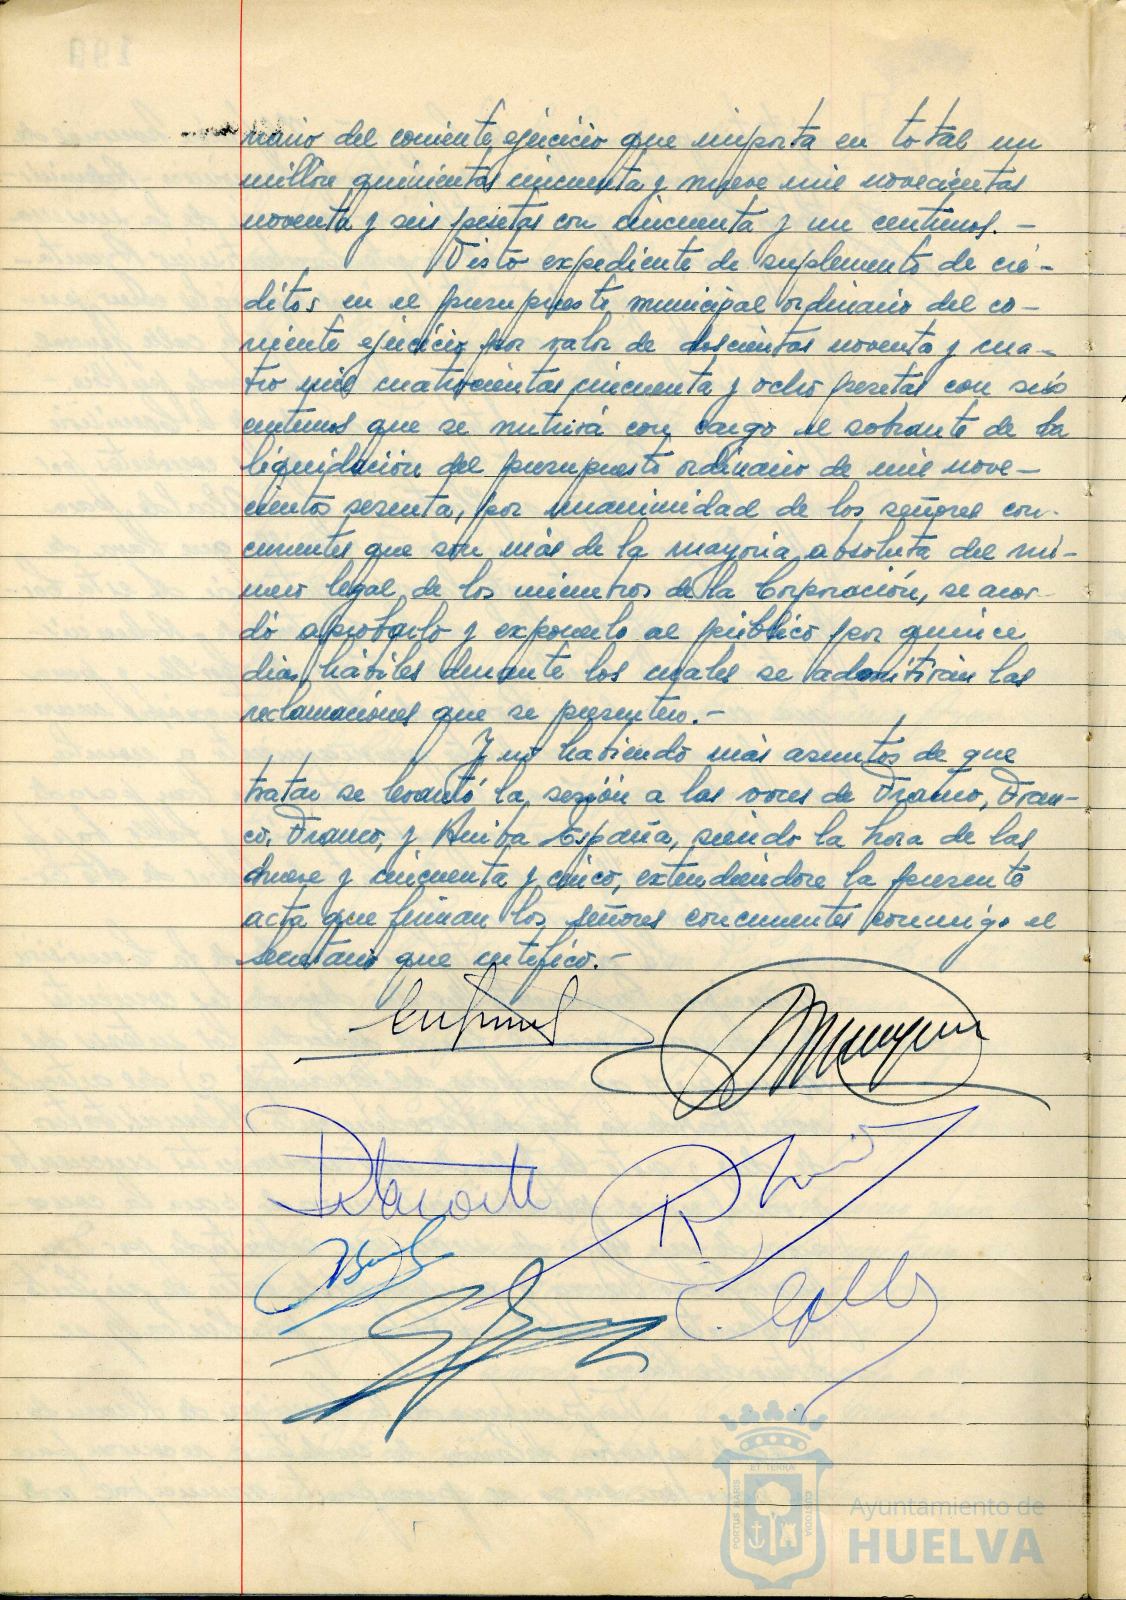 nario del corriente ejercicio que importa en total un
millón quinientas cincuenta y nueve mil novecientas
noventa y seis pesetas con cincuenta y un centimos. -
Visto expediente de suplemento de cré-
ditos en el presupuesto municipal ordinario del co-
rriente ejercicio por valor de doscientas noventa y cua-
tro mil cuatrocientas cincuenta y ocho pesetas con seis
centimos que se nutrirá con cargo al sobrante de la
liquidación del presupuesto ordinario de mil nove-
cientos sesenta, por unanimidad de los señores con-
currentes que son más de la mayoria absoluta del nú-
mero legal de los miembros de la Corporación, se acor-
dó aprobarlo y exponerlo al público por quince
dias hábiles durante los cuales se admitirán las
reclamaciones que se presenten. -
Y no habiendo más asuntos de que
tratar se levantó la sesión a las voces de Franco, Fran-
co, Franco, y Arriba España, siendo la hora de las
y cincuenta y cinco, extendiendose la presente
acta que firman los señores concurrentes conmigo el
secretario que certifico. -
PORTUS MARIS
ET TERRAE
CUSTODIA
Ayuntamiento de
HUELVA